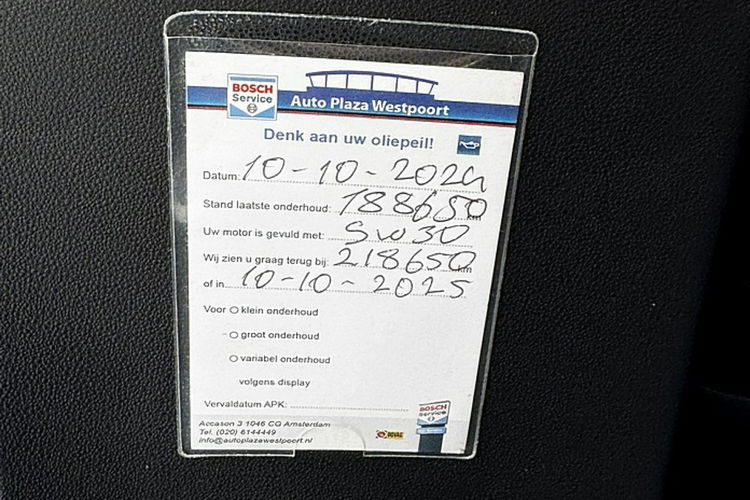 BOSCH
Service
Auto Plaza Westpoort
Denk aan uw oliepeil!
Datum: 10-10-2024
Stand laatste onderhoud: 188650 km
Uw motor is gevuld met: 5w30
Wij zien u graag terug bij: 218650 km
of in 10-10-2025
Voor klein onderhoud
- groot onderhoud
variabel onderhoud
volgens display
Vervaldatum APK:
BOSCH
Service
Accason 3 1046 CG Amsterdam
Tel. (020) 6144449
BOVAG
info@autoplazawestpoort.nl